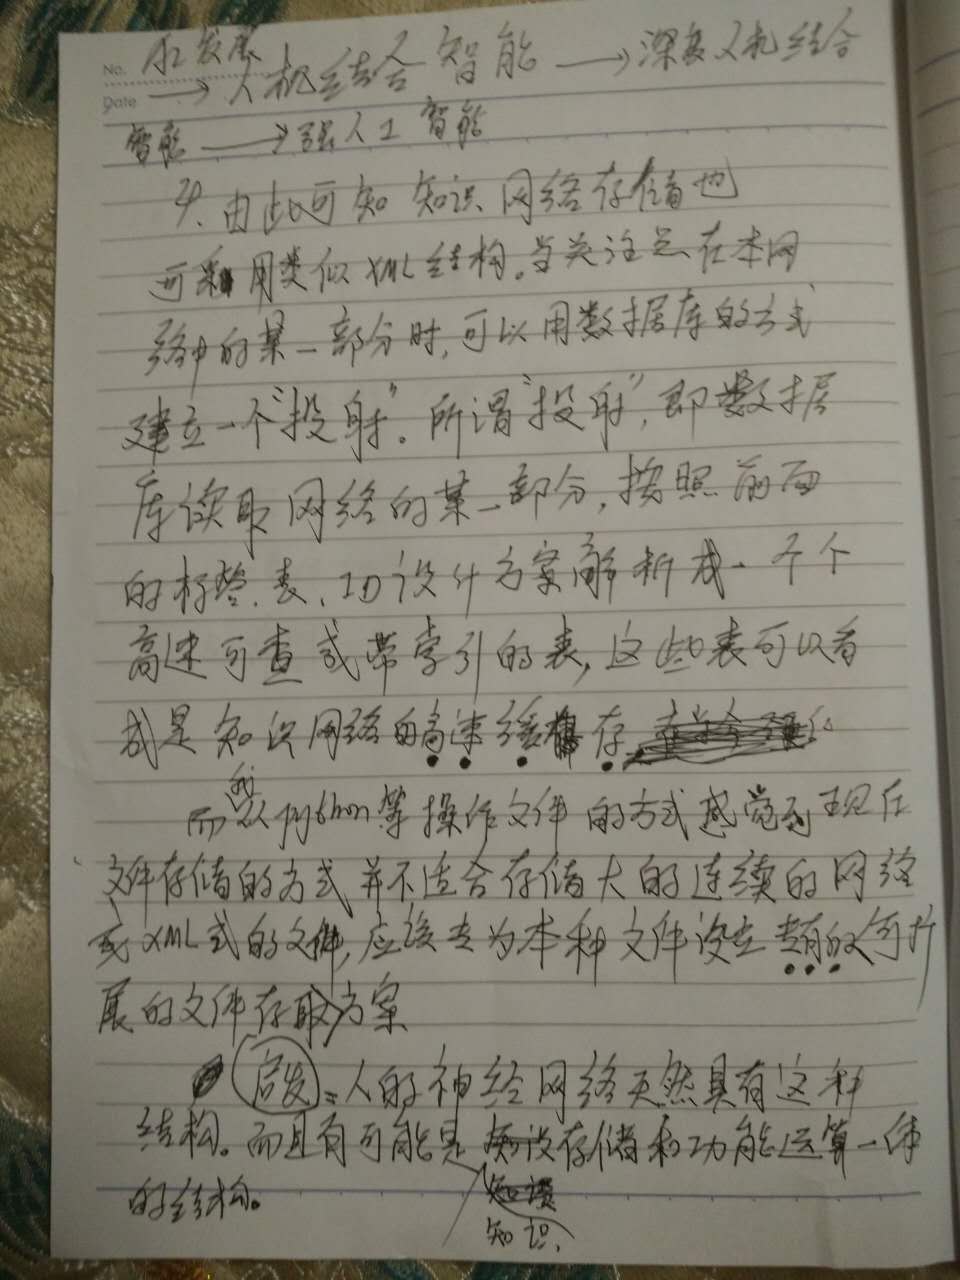 No.
Date
和发展
→人机结合智能→深度人机结合
智能→强人工智能
4.由此可知 知识网络存储也
可采用类似XML结构。当关注点在本网
络中的某一部分时,可以用数据库的方式
建立一个“投射”。所谓“投射”,即数据
库读取网络的某一部分,按照前面
的标签、表、ID设计方案解析成一个个
高速可查或带索引的表,这些表可以看
成是知识网络的高速缓存
而我从python等操作文件的方式感觉到现在
文件存储的方式并不适合存储大的连续的网络
或XML式的文件,应该专为本种文件设立专有的可扩
展的文件存取方案
启发:人的神经网络天然具有这种
结构。而且有可能是知识存储和功能运算一体
的结构。